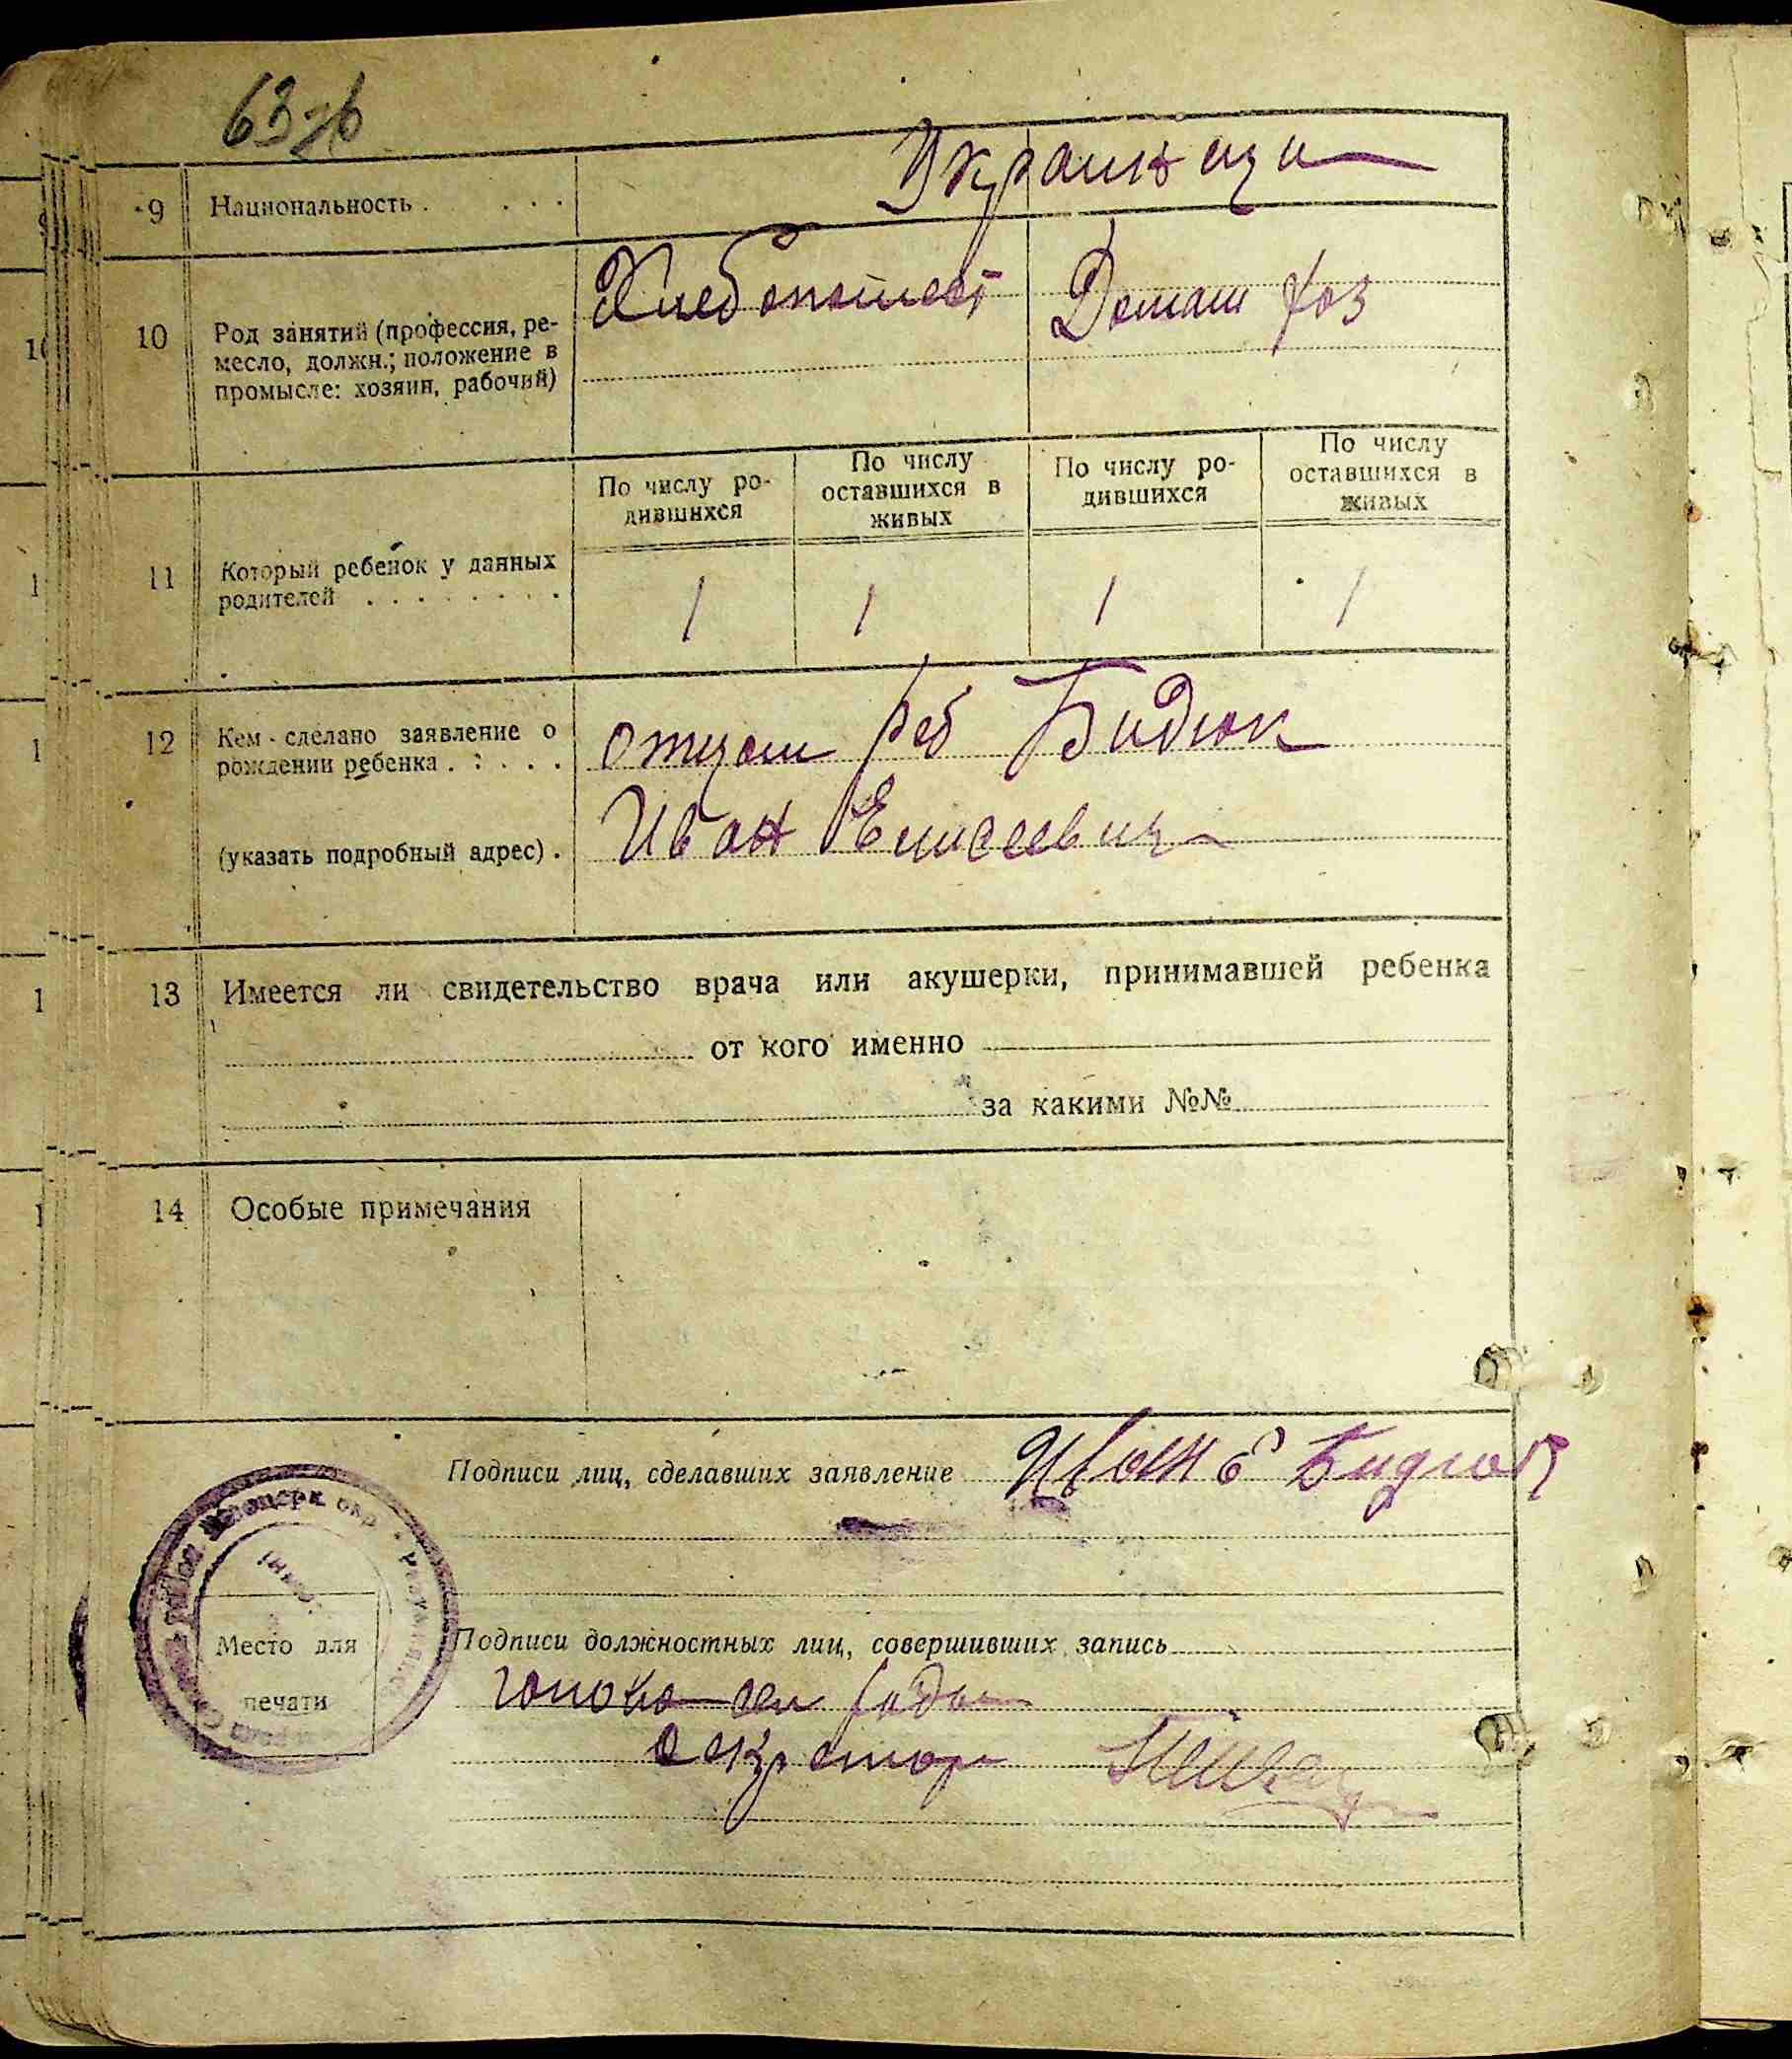 9 Национальность . . . . Украинци
Хлебопашест Домаш хоз
10 Род занятий (профессия, ре-
месло, должн.; положение в
промысле: хозяин, рабочий)
По числу ро-
дившихся
По числу
оставшихся в
живых
По числу ро-
дившихся
По числу
оставшихся в
живых
11 Который ребенок у данных
родителей . . . . . . . . 1 1 1 1
12 Кем сделано заявление о отцом реб Бидюк
рождении ребенка . . . . .
(указать подробный адрес) . Иван Елисеевич
13 Имеется ли свидетельство врача или акушерки, принимавшей ребенка
от кого именно
за какими №№
14 Особые примечания
Подписи лиц, сделавших заявление Иван Е Бидюк
Место для
печати
Подписи должностных лиц, совершивших запись
голова сел рады
секретар